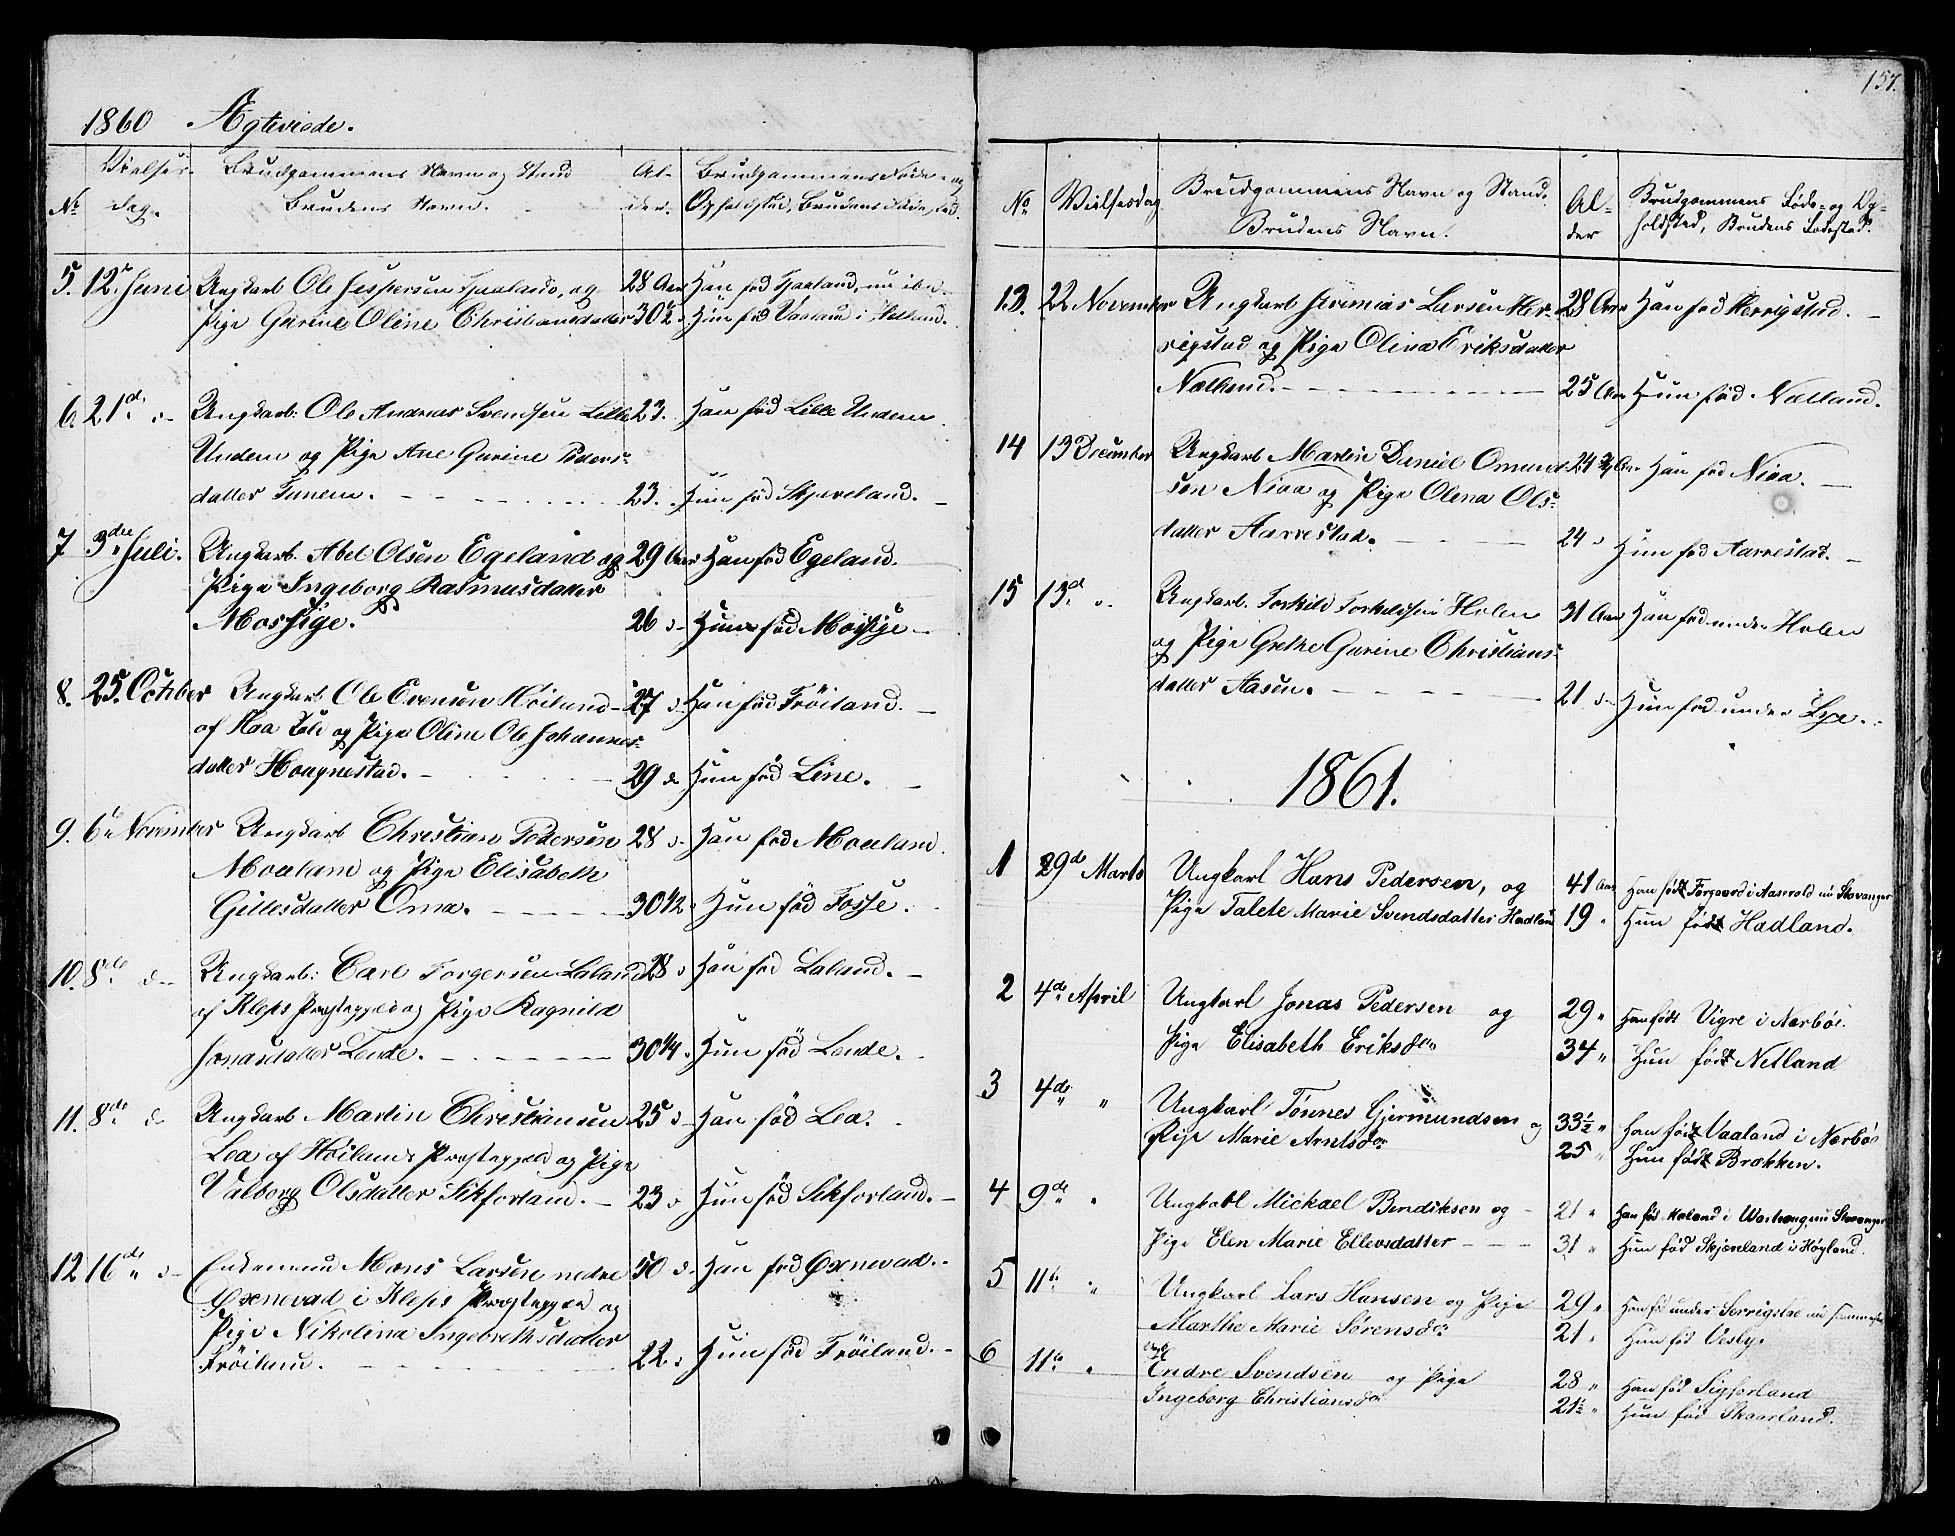 1860 Ægteviede.
No. Vielses-dag. Brudgommens Navn og Stand Brudens Navn. Al-der. Brudgommens Føde- og Opholdsted, Brudens Fødested.
5. 12te Juni Ungkarl Ole Jespersen Fjaaland, og 28 Aar Han fød Fjaaland, nu
Pige Gurine Oline Christiansdatter 30½ Hun fød Vaaland i Hetland.
6. 21de d- Ungkarl: Ole Andreas Svendsen Lille 23. Han fød Lille Undem
Undem og Pige Ane Gurine Peders-
datter Tunem. 23. Hun fød Skjæveland.
7 3die Juli. Ungkarl. Abel Olsen Egeland og 29 Aar Han fød Egeland.
Pige Ingeborg Rasmusdatter
Mossige. 26 d- Hun fød Mossige
8. 25. October Ungkarl Ole Evensen Höiland 27 d- Han fød Fröiland.
af Haa og Pige Oline Ole Johannes-
datter Hougnestad. 29 d. Hun fød Line.
9. 6te November Ungkarl Christian Pedersen 28 d- Han fød Moeland.
Moeland og Pige Elisabeth
Gillesdatter Oma. 30½ Hun fød Fosse.
10. 8de d- Ungkarl: Carl Torgersen Laland 28 d Han fød Laland.
af Kleps Præstegjeld og Pige Ragnild
Jonasdatter Lende. 30¼. Hun fød Lende.
11. 8de d Ungkarl Martin Christiansen 25 d- Han fød Lea.
Lea af Höilands Præstegjeld og Pige
Valborg Olsdatter Sikforland. 23 d Hun fød Sikforland.
12 16de d- Enkemand Mons Larsen nedre 50 d. Han fød Øxnevad.
Øxnevad i Kleps Præstegjeld og
Pige Nikolina Ingebrethsdatter
Fröiland. 22. d Hun fød Fröiland.
157.
No Vielsesdag Brudgommens Navn og Stand. Brudens Navn. Al-der Brudgommens Føde- og Op-holdsted, Brudens Fødested.
13. 22 November Ungkarl Jeremias Larsen Her- 28 Aar Han fød Herrigstad.
rigstad og Pige Olina Eriksdatter
Nælland. 25 Aar Hun fød Nælland.
14 13 December Ungkarl Martin Daniel Omund- 24 ¾ Aar Han fød Niaa.
sen Niaa og Pige Olena Ols-
datter Aarrestad. 24 d Hun fød Aarrestad.
15 13de d. Ungkarl. Torkild Torkildsen Holen 31 Aar Han fød under Holen
og Pige Grethe Gurine Christians-
datter Aasen. 21 d- Hun fød under Lye.
1861.
1 29de Marts Ungkarl Hans Pedersen, og 41 Aar Han født Torgaard i Aaserald nu Stavanger
Pige Talete Marie Svendsdatter Hadland 19 " Hun født Hadland.
2 4de April Ungkarl Jonas Pedersen og 29 " Han født Vigre i Nærbö.
Pige Elisabeth Eriksdr 34 " Hun født Netland
3 4de " Ungkarl Tønnes Gjermundsen og 33½ " Han født Vaaland i Nærbö
Pige Marie Arntsdr 25 " Hun født Brækken.
4 9de " Ungkarl Mickael Bendiksen og 21 " Han fød Moland i nu Stavanger
Pige Elen Marie Ellevsdatter 31 " Hun fød Skjæveland i Høyland.
5 11te " Ungkarl Lars Hansen og Pige 29 " Han fød under
Marthe Marie Sørensdr 21 " Hun fød Oesby.
6 11te " Ungk Endre Svendsen og Pige 28 " Han fød Sigforland
Ingeborg Christiansdr 21½ " Hun fød Skaarland.